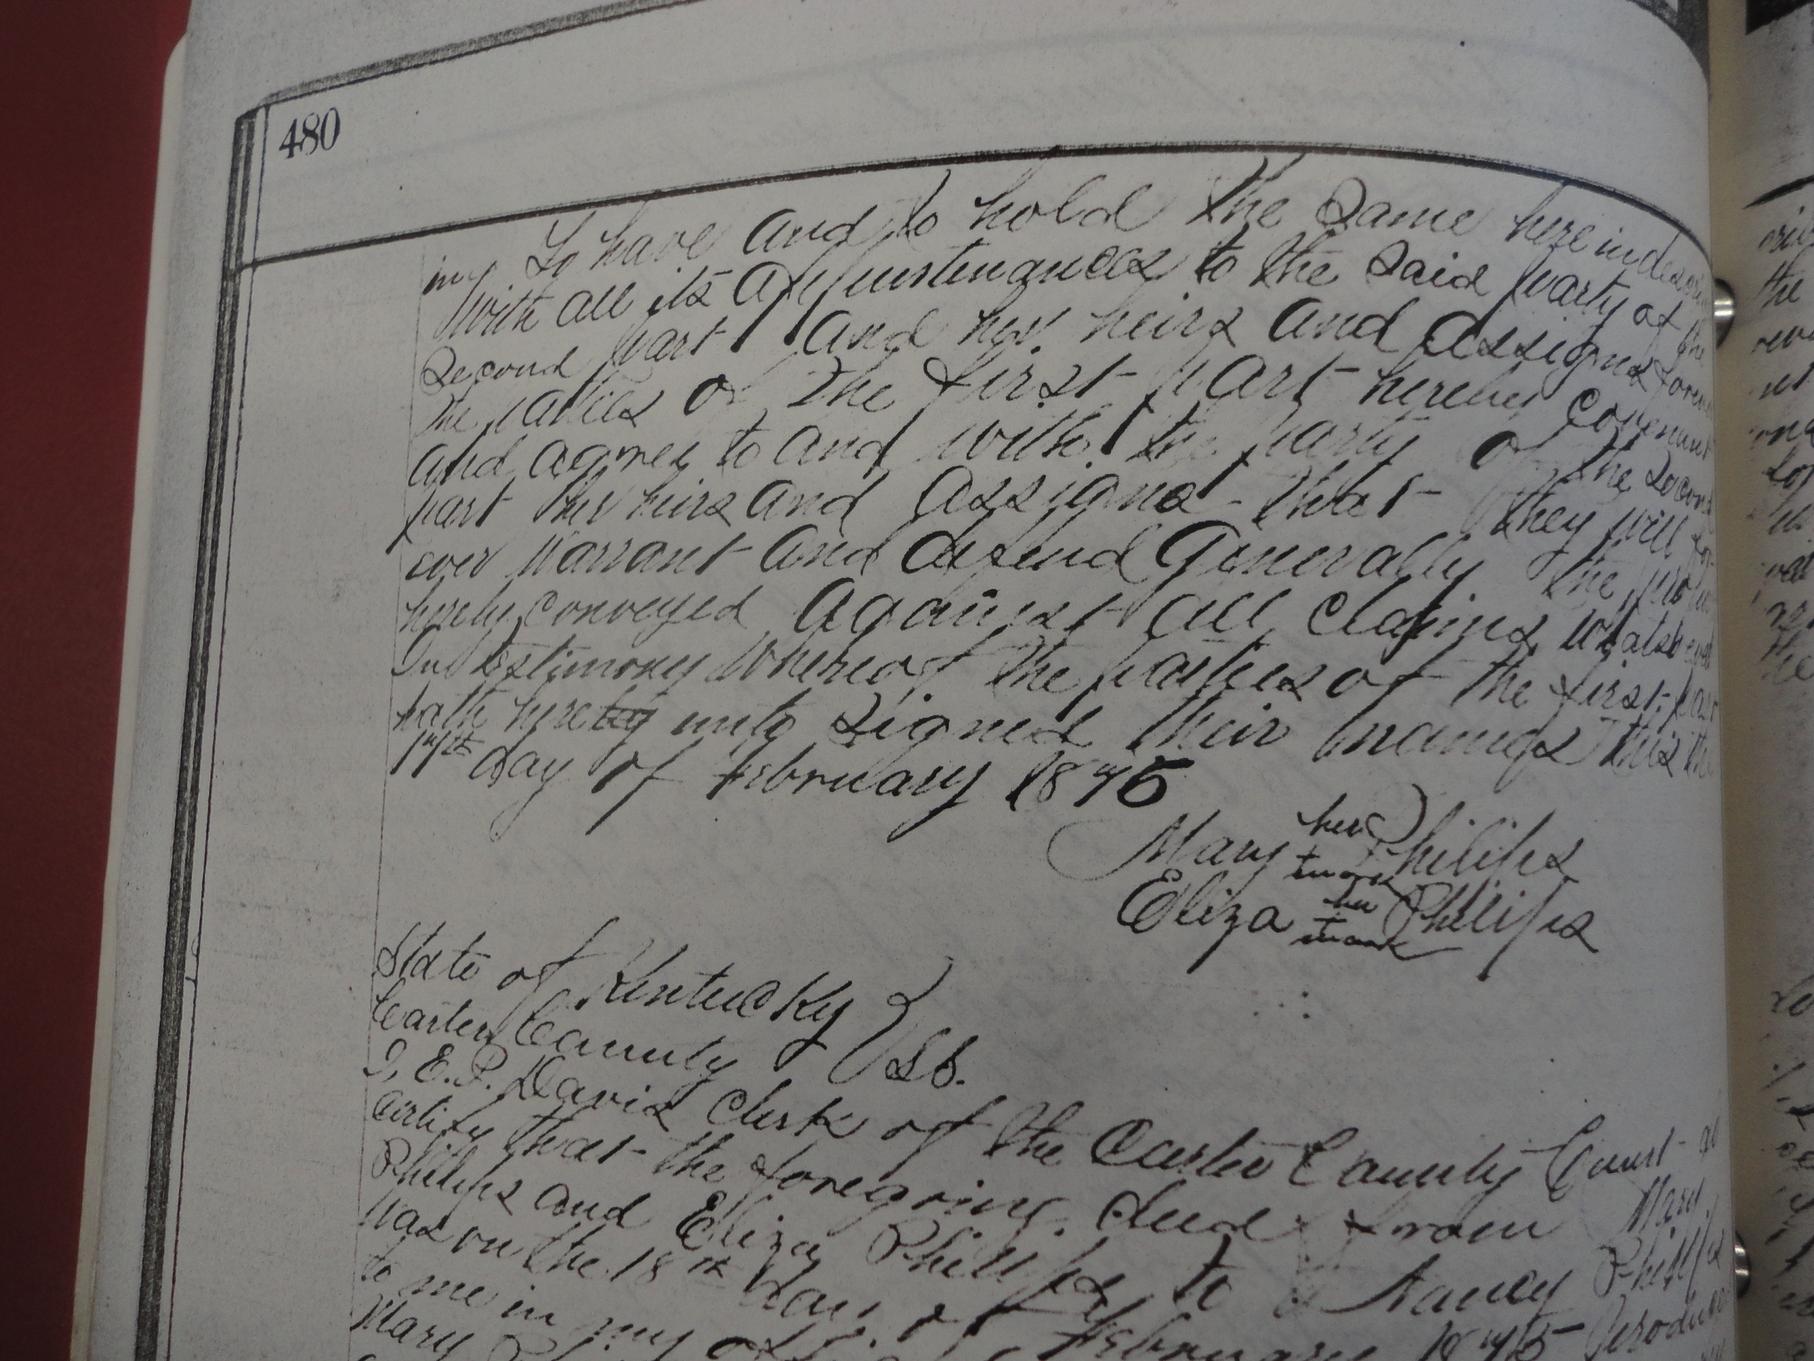 480
To have and to hold the Same herein
ing With all its appurtenances to the Said party of the
Second part and her heirs and assigns
The parties of the first part hereby Covenant
and agree to and with the party of the Second
part her heirs and assigns that they will for
ever Warrant and defend Generally the
hereby conveyed Against all Claims whatsoever
In testimony Whereof the parties of the first part
hath hereby unto Signed their names This the
17th day of February 1875
Mary her mark Philips
Eliza her mark Philips
State of Kentucky
Carter County } SS.
I, E.P. Davis Clerk of the Carter County Court
Certify that the foregoing deed from Mary
Philips and Eliza Philips to Nancy Philips
Was on the 18th day of February 1875
to me in my
Mary